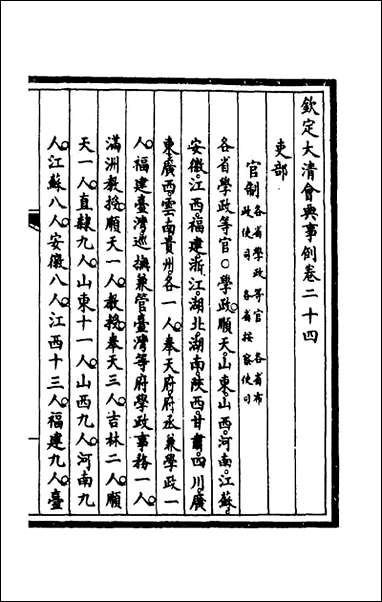 欽定大清會典事例卷二十四
吏部
官制各省學政等官 各省布
政使司 各省按察使司
各省學政等官○學政順天。山東。山西。河南。江蘇。
安徽。江西。福建。浙江。湖北。湖南。陝西。甘肅。四川。廣
東。廣西。雲南。貴州。各一人。奉天府府丞兼學政一
人。福建臺灣巡撫兼管臺灣等府學政事務一人。
滿洲教授順天一人。教授奉天三人。吉林二人。順
天一人。直隸九人。山東十一人。山西九人。河南九
人。江蘇八人。安徽八人。江西十三人。福建九人。臺